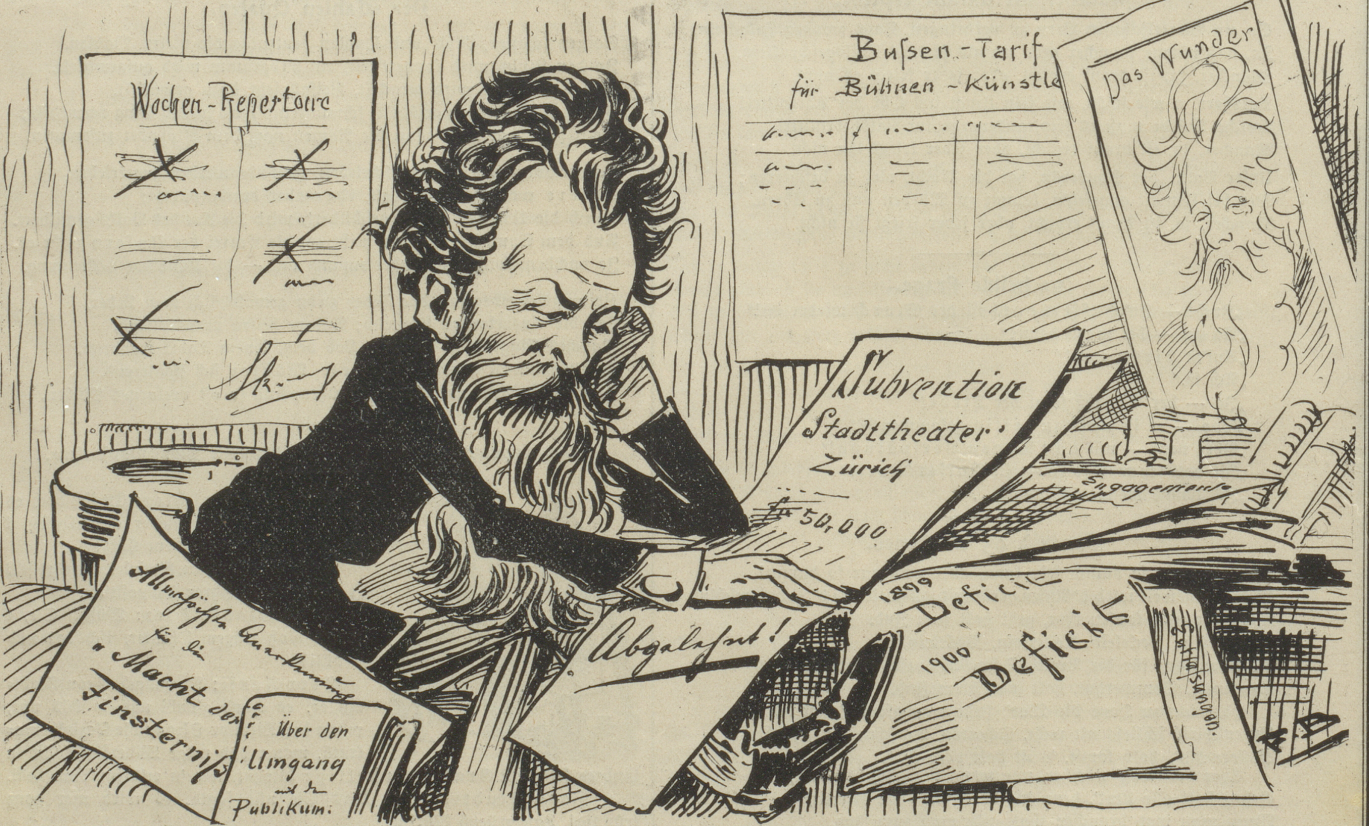 Wochen-Repertoire
Bußen-Tarif
für Bühnen-Künstle
Das Wunder
Subvention
Stadttheater
Zürich
50,000
Engagements
1899
Deficit
1900
Deficit
Entlassungen.
Abgelehnt!
Allerhöchste Anerkennung
für die
"Macht der
Finsterniß
Über den
Umgang
mit dem
Publikum.